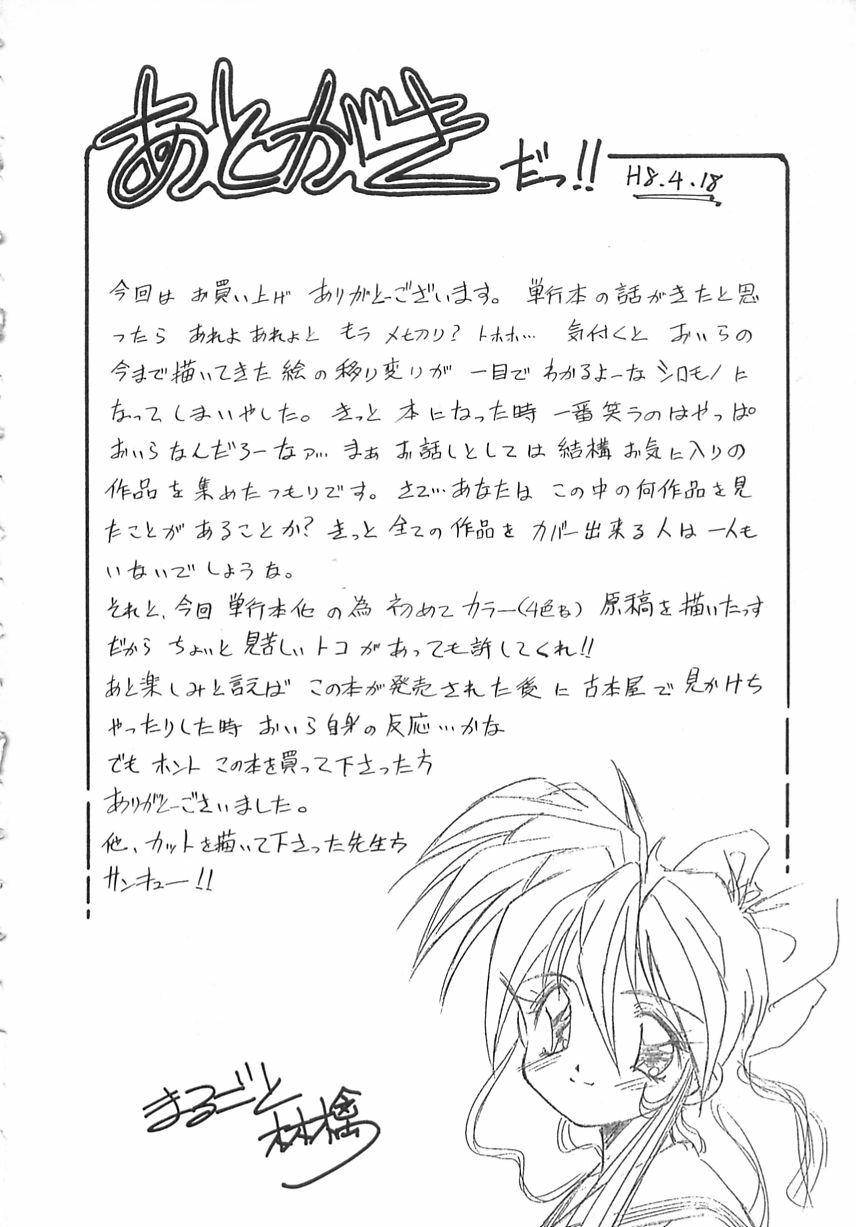 あとがきだっ!!
H8.4.18
今回は お買い上げ ありがとーございます。 単行本の話がきたと思
ったら あれよあれよと もう 〆切り? トホホ… 気付くと おいらの
今まで描いてきた絵の移り変りが 一目で わかるよーな シロモノに
なってしまいやした。きっと 本になった時 一番笑うのはやっぱ
おいらなんだろーなァ… まぁ お話しとしては 結構 お気に入りの
作品を集めたつもりです。さて…あなたは この中の何作品を見
たことがあることか? きっと 全ての作品を カバー出来る人は一人も
いないでしょうな。
それと、今回 単行本化の為 初めて カラー(4色ね) 原稿を描いたっす
だから ちょいと 見苦しい トコ があっても許してくれ!!
あと楽しみと言えば この本が発売された後に 古本屋で 見かけち
ゃったりした時 おいら自身の反応…かな
でも ホント この本を買って下さった方
ありがとーございました。
他、カットを描いて下さった先生方
サンキュー!!
まるごと
林檎